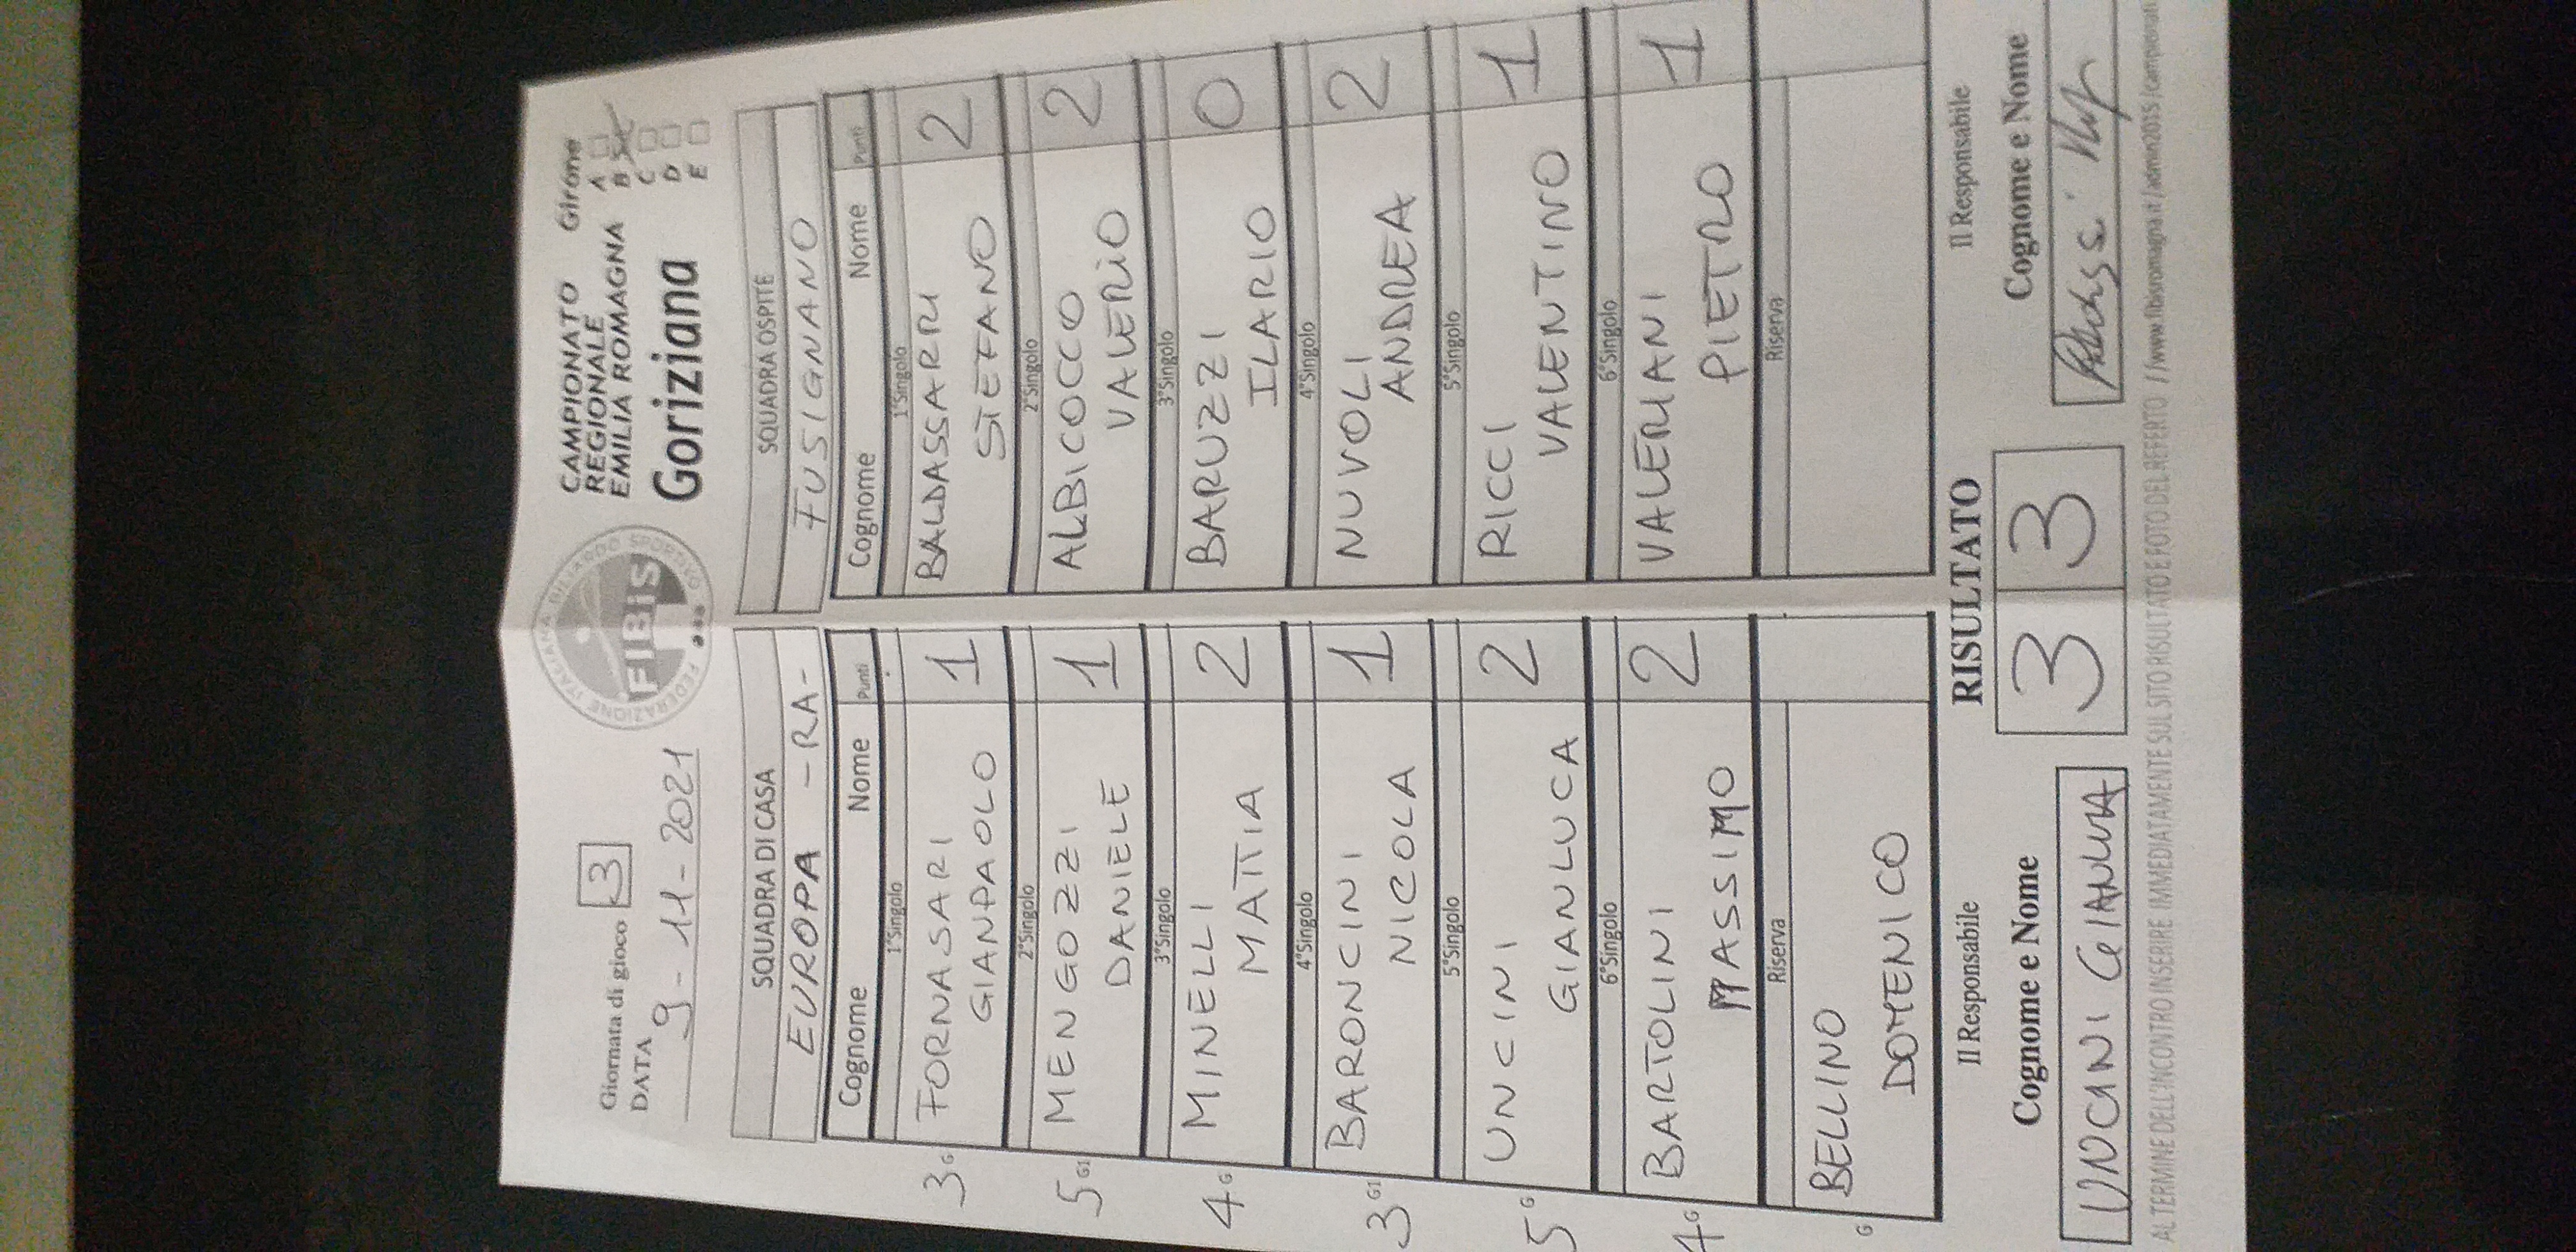 Giornata di gioco 3
DATA 9-11-2021
FEDERAZIONE ITALIANA BILIARDO SPORTIVO
FIBIS
CAMPIONATO
REGIONALE
EMILIA ROMAGNA
Goriziana
Girone
A
B
C
D
E
SQUADRA DI CASA
EUROPA - RA -
SQUADRA OSPITE
FUSIGNANO
Cognome Nome Punti
Cognome Nome Punti
1°Singolo
1°Singolo
3 G FORNASARI
GIANPAOLO 1
BALDASSARRI
STEFANO 2
2°Singolo
2°Singolo
5 G1 MENGOZZI
DANIELE 1
ALBICOCCO
VALERIO 2
3°Singolo
3°Singolo
4 G MINELLI
MATTIA 2
BARUZZI
ILARIO 0
4°Singolo
4°Singolo
3 G1 BARONCINI
NICOLA 1
NUVOLI
ANDREA 2
5°Singolo
5°Singolo
5 G UNCINI
GIANLUCA 2
RICCI
VALENTINO 1
6°Singolo
6°Singolo
4 G BARTOLINI
MASSIMO 2
VALERIANI
PIETRO 1
Riserva
Riserva
G BELLINO
DOMENICO
Il Responsabile
RISULTATO
Il Responsabile
Cognome e Nome
3 3
Cognome e Nome
UNCINI GIANLUCA
AL TERMINE DELL'INCONTRO INSERIRE IMMEDIATAMENTE SUL SITO RISULTATO E FOTO DEL REFERTO //www.fibisromagna.it/admin2015/campionati